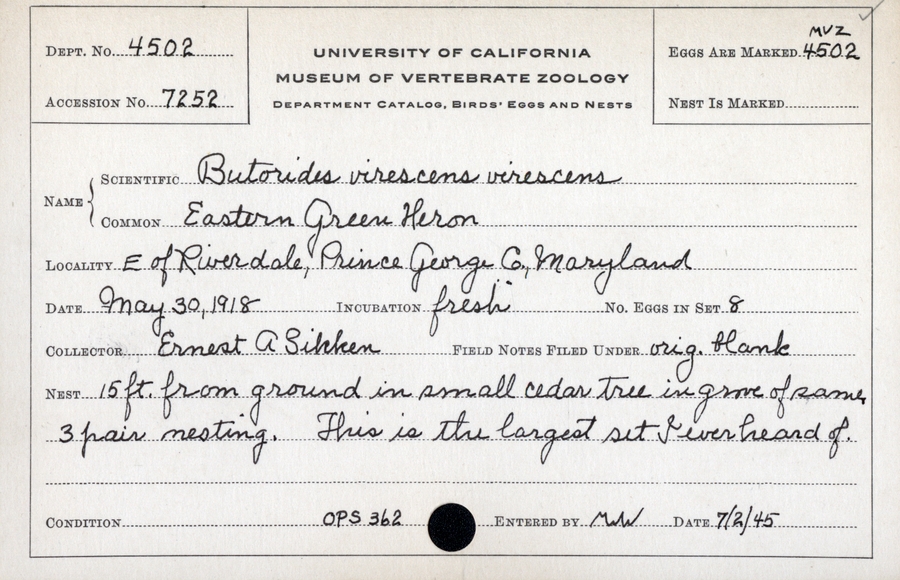 Dept. No. 4502
Accession No. 7252
UNIVERSITY OF CALIFORNIA
MUSEUM OF VERTEBRATE ZOOLOGY
Department Catalog, Birds' Eggs and Nests
MVZ
Eggs Are Marked 4502
Nest Is Marked
Name
Scientific Butorides virescens virescens
Common Eastern Green Heron
Locality E of Riverdale, Prince George Co., Maryland
Date May 30, 1918 Incubation fresh No. Eggs in Set 8
Collector Ernest A Sikken Field Notes Filed Under orig. blank
Nest 15 ft. from ground in small cedar tree in grove of same,
3 pair nesting. This is the largest set I ever heard of.
Condition OPS 362 Entered by MWW Date 7/2/45